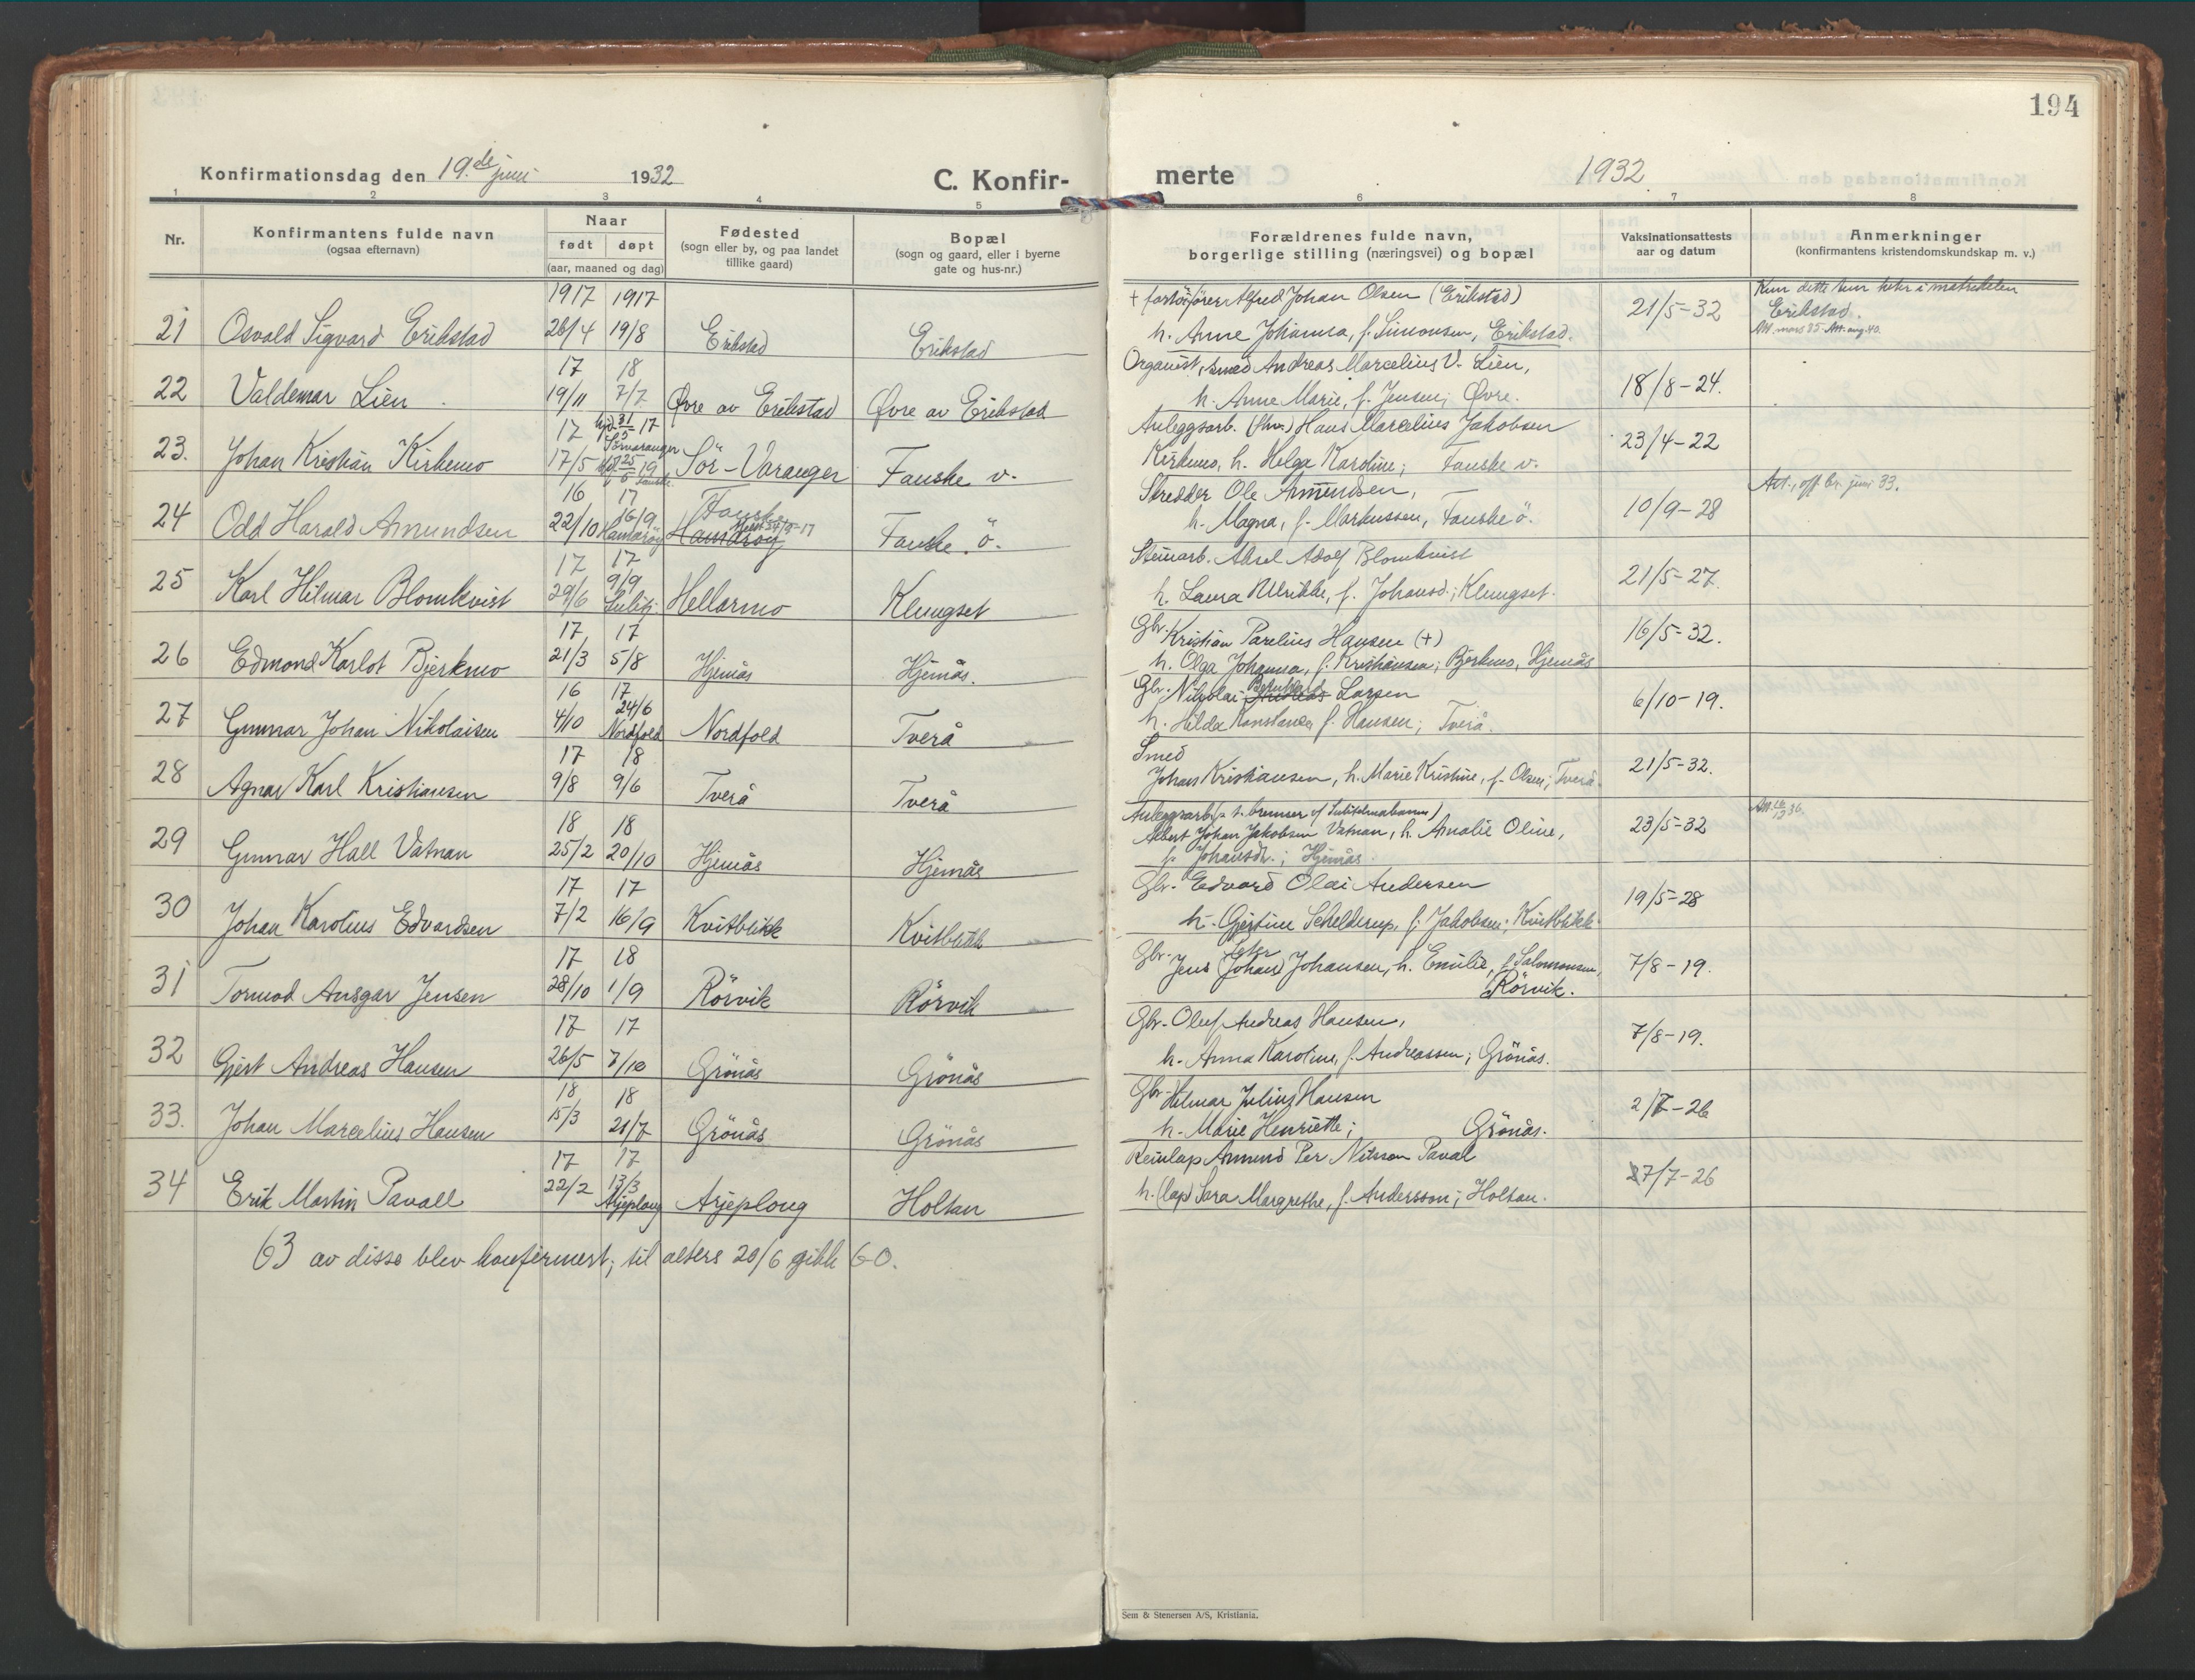 194
Konfirmationsdag den 19.de juni 1932
C. Konfir-
merte
1932
1 2 3 4 5 6 7 8
Nr.
Konfirmantens fulde navn
(ogsaa efternavn)
Naar
født døpt
(aar, maaned og dag)
Fødested
(sogn eller by, og paa landet
tillike gaard)
Bopæl
(sogn og gaard, eller i byerne
gate og hus-nr.)
Forældrenes fulde navn,
borgerlige stilling (næringsvei) og bopæl
Vaksinationsattests
aar og datum
Anmerkninger
(konfirmantens kristendomskundskap m. v.)
1917 1917
21 Osvald Sigvard Erikstad 26/4 19/8 Erikstad Erikstad
+ Alfred Johan Olsen (Erikstad)
h. Anne Johanna, f. Simonsen, Erikstad.
21/5-32
Kun dette
Erikstad.
Att. mars 35 Att. aug. 40.
17 18
22 Valdemar Lien 19/11 7/7 Øvre av Erikstad Øvre av Erikstad
Organist, smed Andreas Marcelius V. Lien,
h. Anne Marie, f. Jensen; Øvre.
18/8-24.
17 hjd. 31/5 17
Sörvaranger
23. Johan Kristian Kirkemo 17/5 25/6 19 Fauske Sör-Varanger Fauske v.
Anleggsarb. Hans Marcelius Jakobsen
Kirkemo, h. Helga Karoline; Fauske v.
23/4-22
16 17 Fauske
24 Odd Harald Amundsen 22/10 16/9 Hamarøy Hamarøy Fauske ö.
Skredder Ole Amundsen,
h. Magna, f. Markussen, Fauske ö.
10/9-28
Att., off. br. juni 33.
17 17
25 Karl Hilmar Blomkvist 29/6 9/9 Sulitj. Hellarmo Klungset
Stenarb. Aksel Adolf Blomkvist
h. Laura Ulrikke, f. Johansd.; Klungset.
21/5-27.
17 17
26 Edmond Karlot Bjerkmo 21/3 5/8 Hjemås Hjemås.
Gbr. Kristian Parelius Hansen (+)
h. Olga Johanna, f. Kristiansen; Bjerkmo, Hjemås
16/5-32.
16 17
27 Gunnar Johan Nikolaisen 4/10 24/6 Nordfold Nordfold Tverå
Gbr. Nikolai Andreas Larsen
h. Hilda Konstanse f. Hansen; Tverå.
6/10-19.
17 18
28 Agnar Karl Kristiansen 9/8 9/6 Tverå Tverå
Smed
Johan Kristiansen, h. Marie Kristine, f. Olsen; Tverå.
21/5-32.
18 18
29 Gunnar Hall Vatnan 25/2 20/10 Hjemås Hjemås
Anleggsarb. (p. t. bremser v/ Sulitelmabanen)
Albert Johan Jakobsen Vatnan, h. Amalie Oline,
f. Johansdr.; Hjemås.
23/5-32
17 17
30 Johan Karolius Edvardsen 7/2 16/9 Kvitblikk Kvitblikk
Gbr. Edvard Olai Andersen
h. Gjertine Schelderup, f. Jakobsen; Kvitblikk.
19/5-28
17 18
31 Tormod Ansgar Jensen 28/10 1/9 Rörvik Rörvik
Peter
Gbr. Jens (Johan) Johansen, h. Emilie, f. Salomonsen,
Rörvik.
7/8-19.
17 17
32 Gjert Andreas Hansen 26/5 7/10 Grönås Grönås
Gbr. Oluf Andreas Hansen,
h. Anna Karoline, f. Andreassen; Grönås.
7/8-19.
18 18
33. Johan Marcelius Hansen 15/3 21/7 Grönås Grönås
Gbr. Hilmar Julius Hansen
h. Marie Henriette; Grönås.
2/7-26
17 17
34 Erik Martin Pavall 22/2 13/3 Arjeploug Arjeploug Holtan
Reinlap Anmund Per Nilsson Paval
h. (lap) Sara Margrethe, f. Andersson; Holtan.
27/7-26
63 av disse blev konfirmert; til alters 20/6 gikk 60.
Sem & Stenersen A/S, Kristiania.